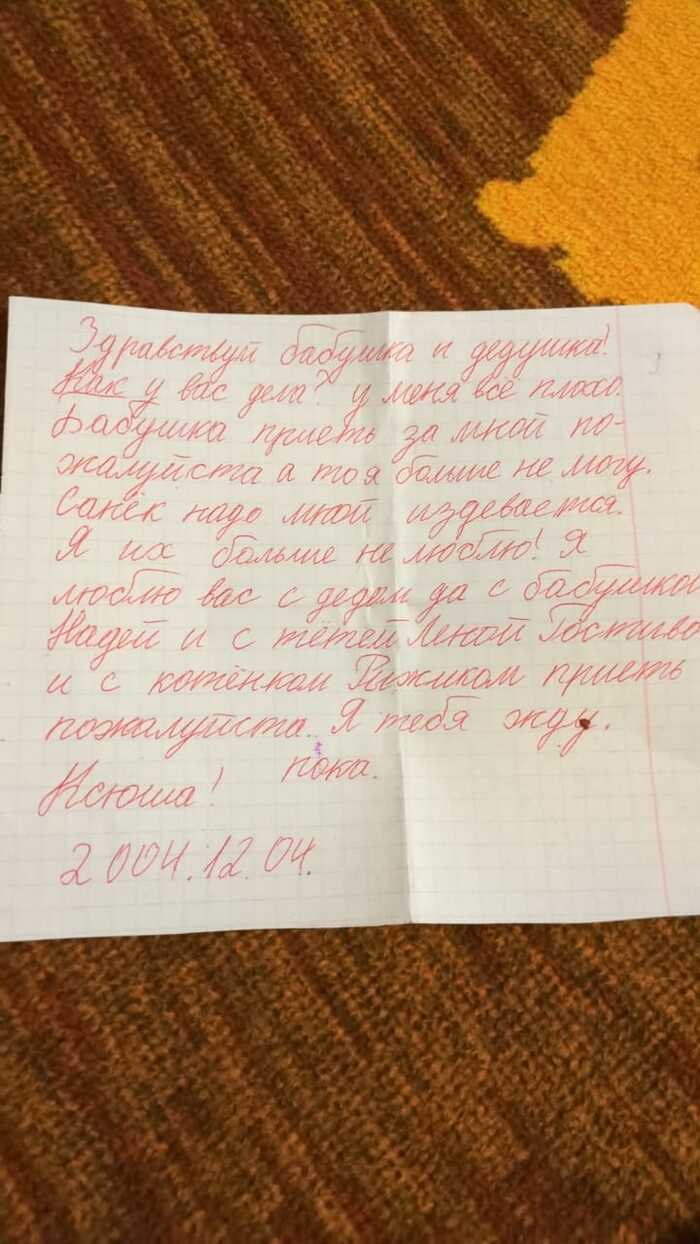 Здравствуй бабушка и дедушка!
Как у вас дела? у меня всё плохо.
Бабушка приеть за мной по-
жалуйста а то я больше не могу.
Санёк надо мной издевается.
Я их больше не люблю! Я
люблю вас с дедом да с бабушкой
Надей и с тётей Леной Гостиво
и с котёнком Рыжиком приеть
пожалуйста. Я тебя жду.
пока.
Ксюша!
2004.12.04.